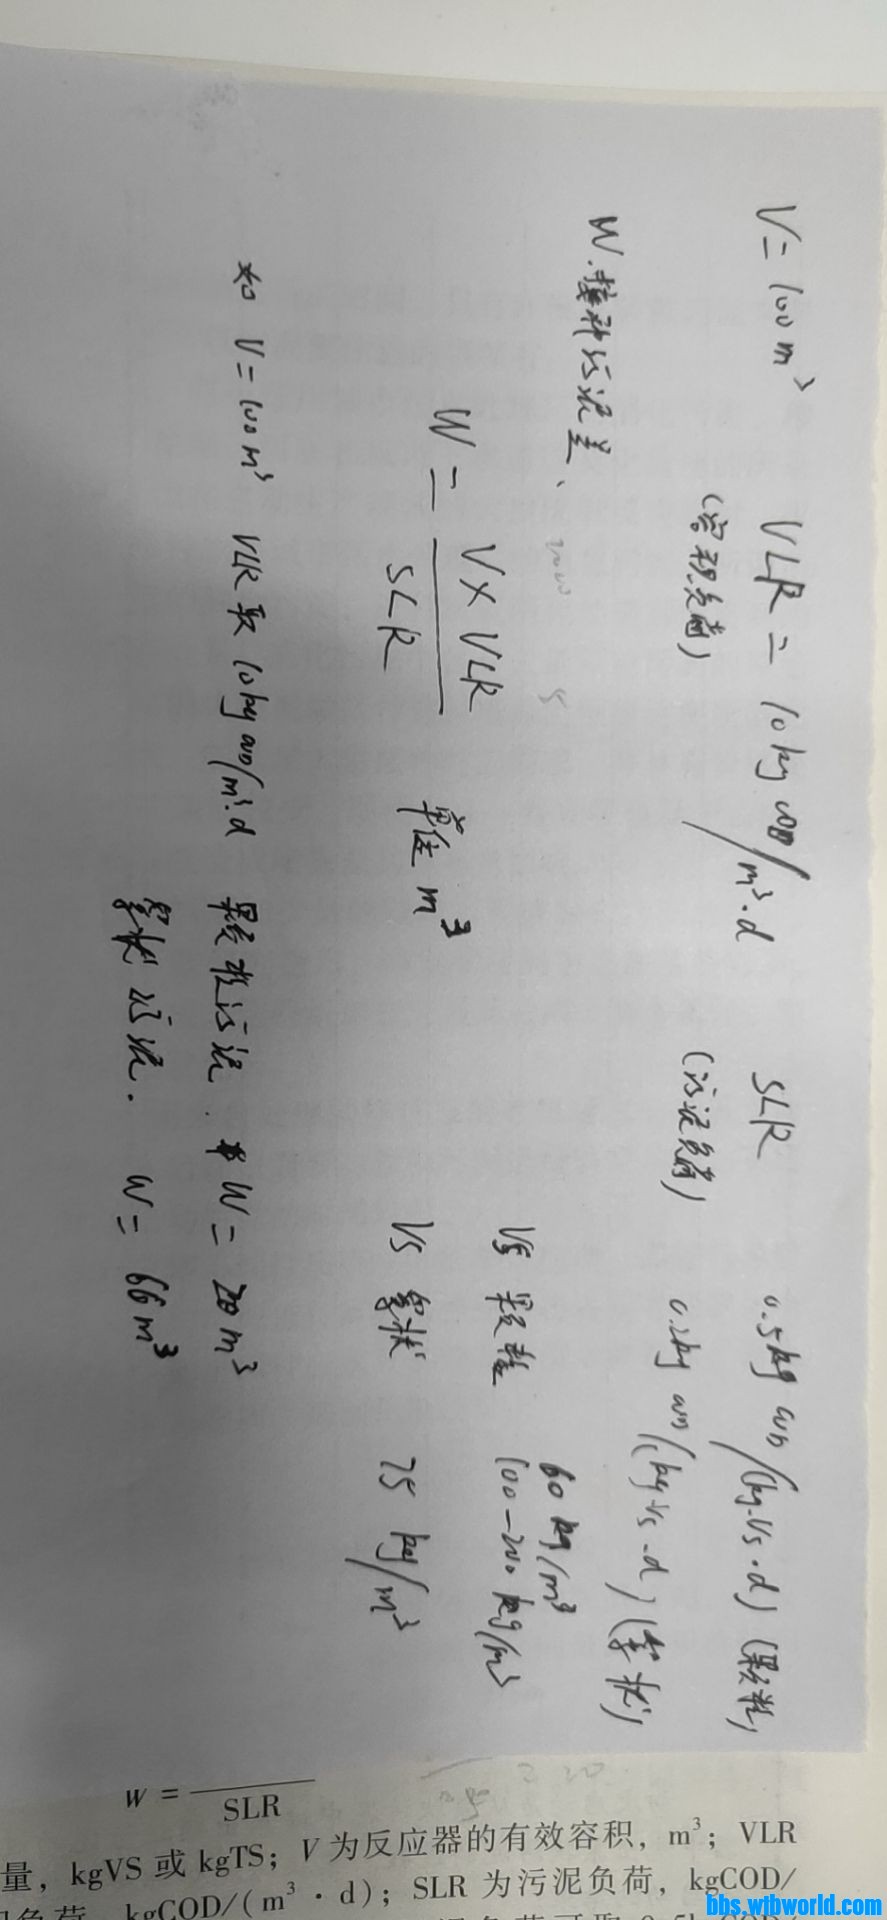 V = 100 m³ VLR = 10 kg COD/m³·d SLR 0.5 kg COD/(kg·VS·d) (颗粒)
(容积负荷) (污泥负荷) 0.2 kg COD/(kg·VS·d) (絮状)
W. 接种污泥量、
60 kg/m³
W = V × VLR / SLR 单位 m³ VS 颗粒 100-200 kg/m³
VS 絮状 25 kg/m³
如 V = 100 m³ VLR 取 10 kg COD/m³·d 颗粒污泥. W = 20 m³
絮状污泥. W = 66 m³
W = SLR
量，kgVS 或 kgTS；V 为反应器的有效容积，m³；VLR
负荷，kgCOD/(m³·d)；SLR 为污泥负荷，kgCOD/
bbs.wibworld.com